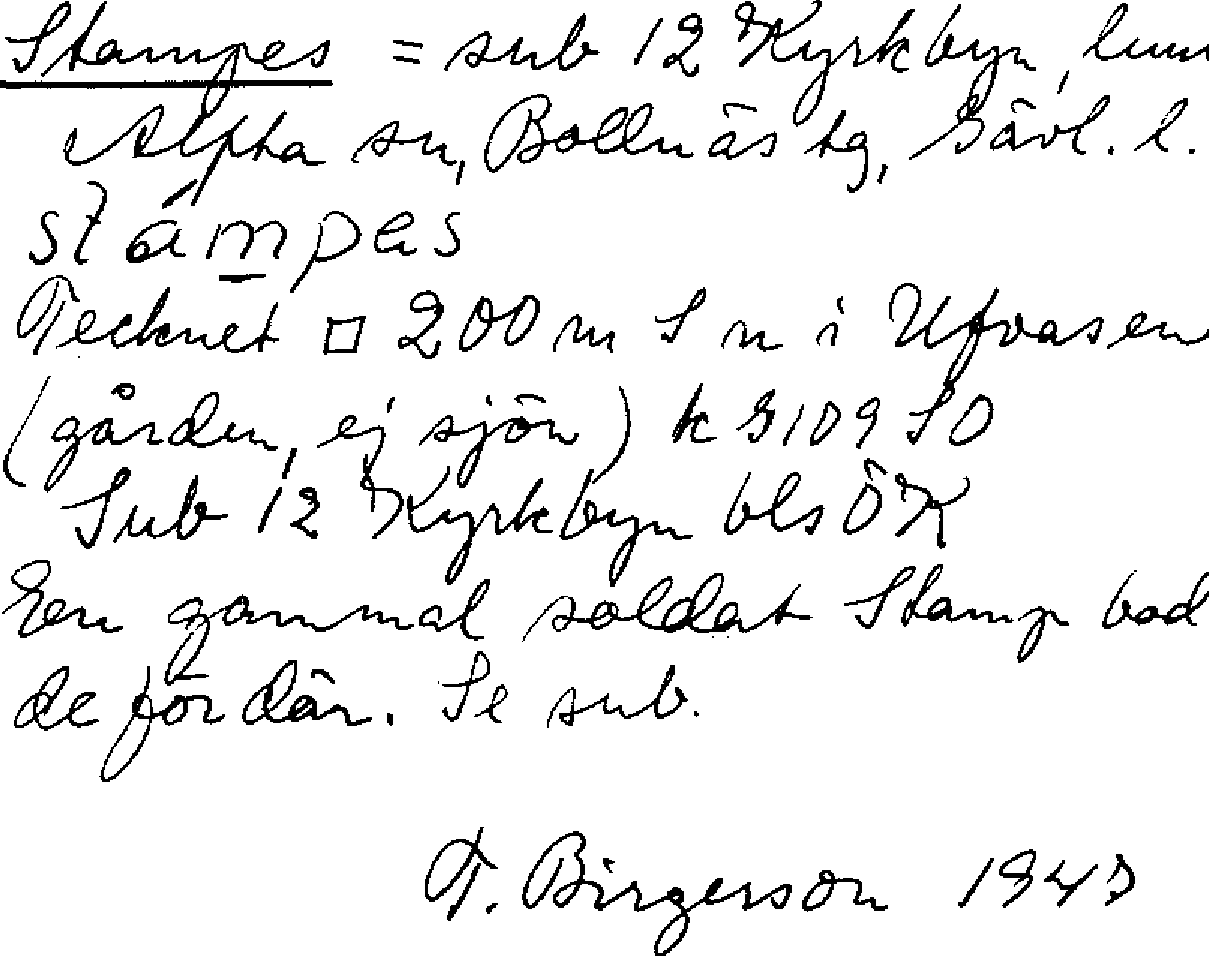 Stampes = sub 12 Kyrkbyn, lum
Alfta sn, Bollnäs tg, Gävl. l.
stámpas
Tecknet □ 200 m S n i Ufvasen
(gården, ej sjön) k G109 SO
Sub 12 Kyrkbyn bls ÖK
En gammal soldat Stamp bod
de förr där. Se sub.
T. Birgerson